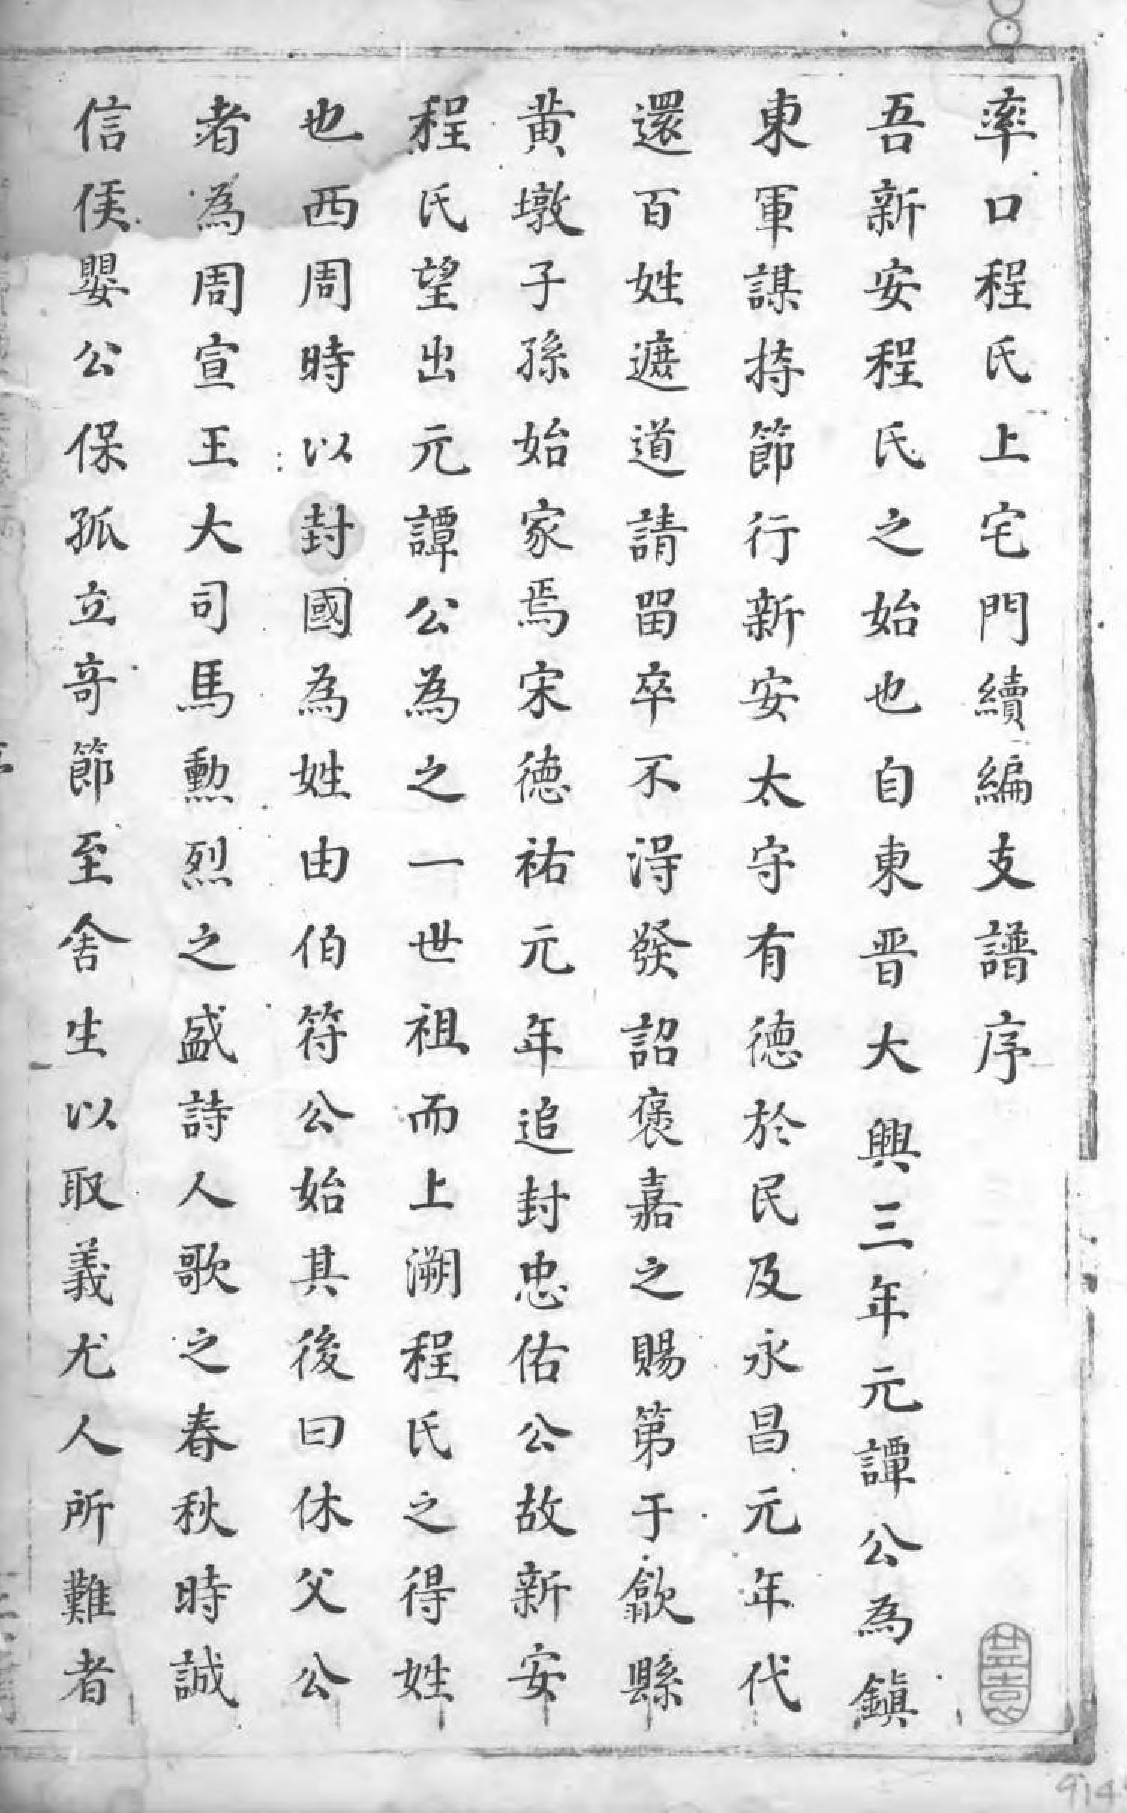 率口程氏上宅門續編支譜序
吾新安程氏之始也自東晋大興三年元譚公為鎮
東軍謀持節行新安太守有徳於民及永昌元年代
還百姓遮道請留卒不淂發詔褒嘉之賜第于歙縣
黄墩子孫始家焉宋徳祐元年追封忠佑公故新安
程氏望出元譚公為之一世祖而上溯程氏之得姓
也西周時以封國為姓由伯符公始其後曰休父公
者為周宣王大司馬勲烈之盛詩人歌之春秋時誠
信侯嬰公保孤立竒節至舍生以取義尤人所難者
914